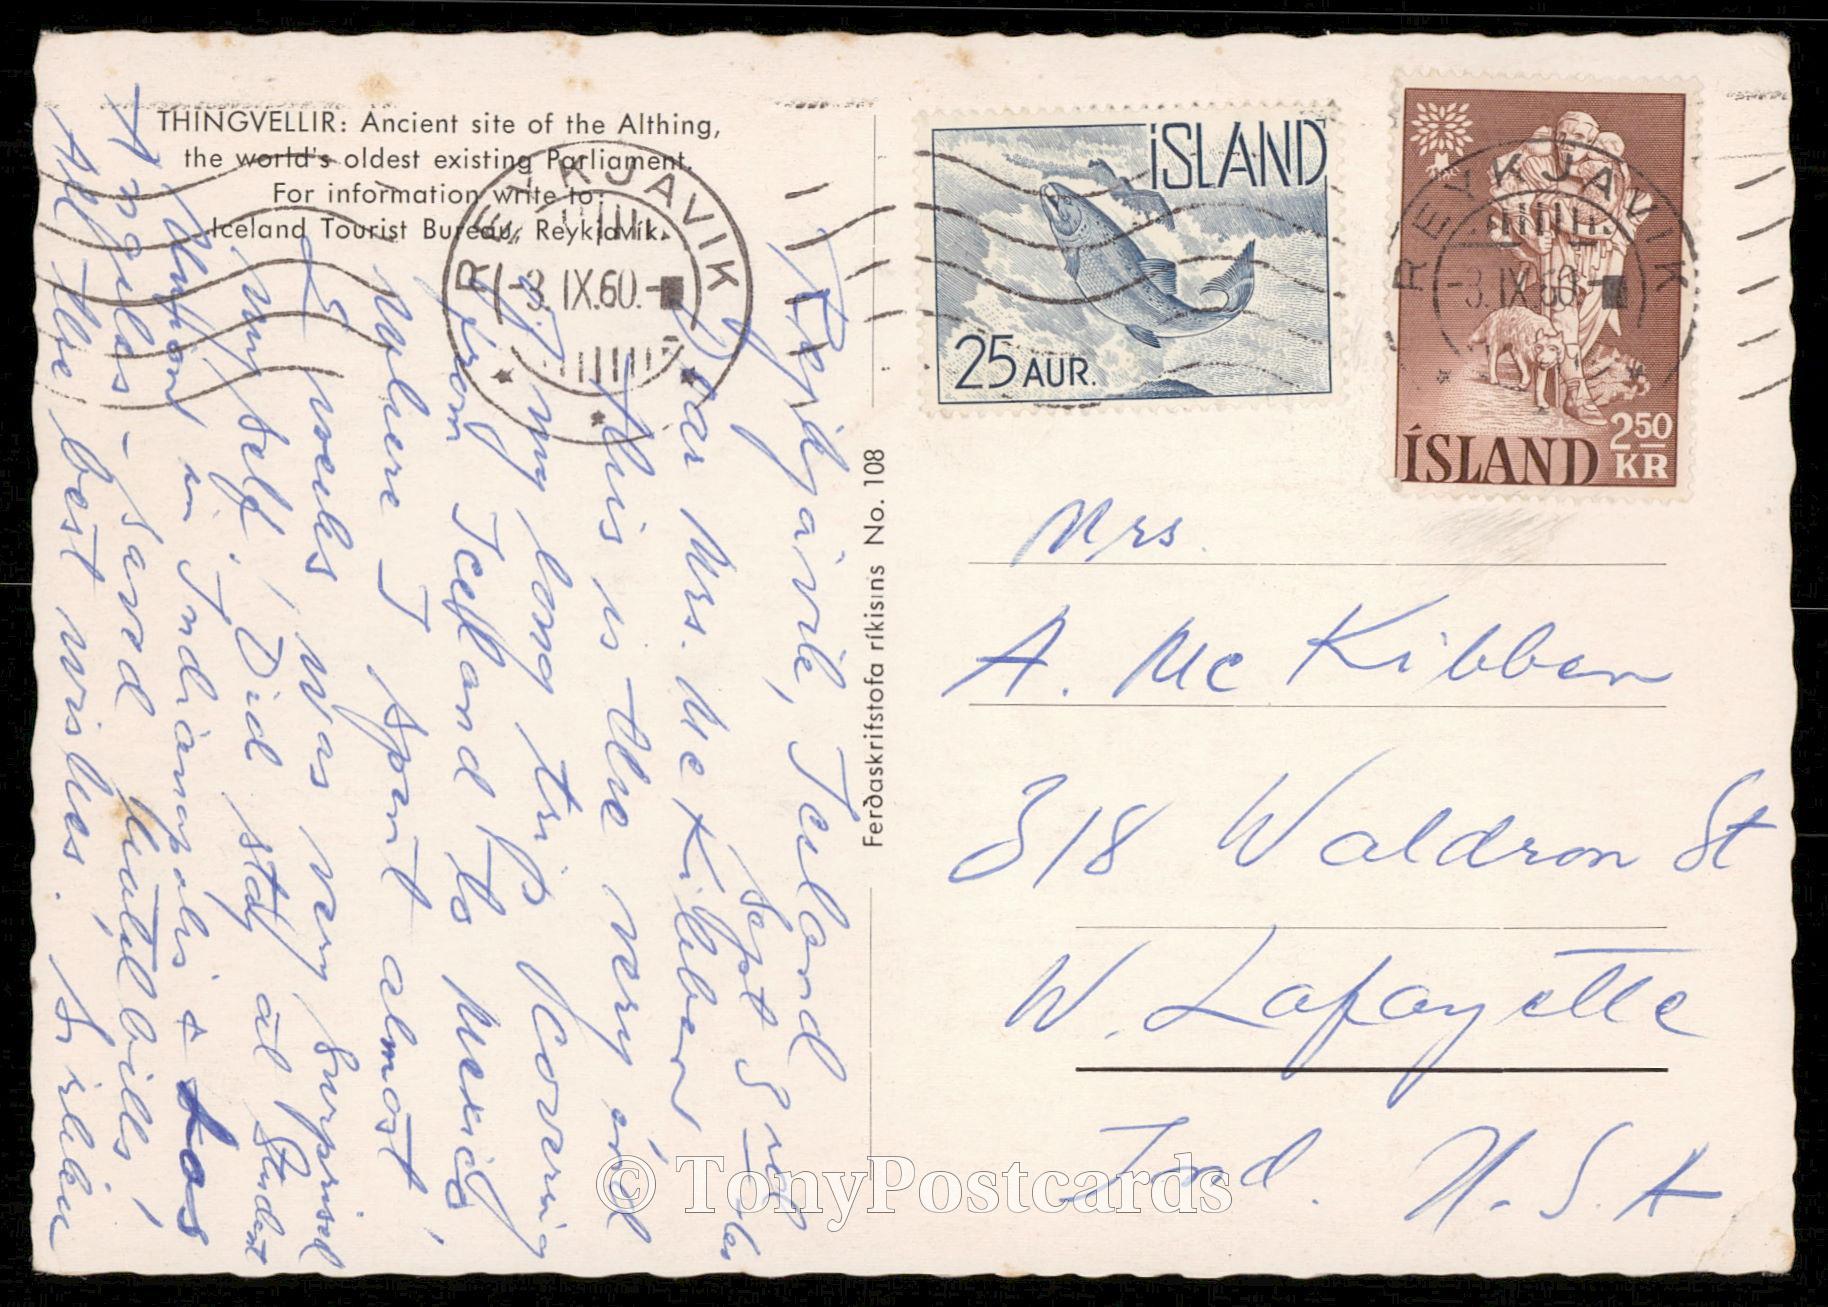 THINGVELLIR: Ancient site of the Althing,
the world's oldest existing Parliament.
For information write to:
Iceland Tourist Bureau, Reykjavík.
REYKJAVIK
-3. IX.60.-
ÍSLAND
25 AUR.
REYKJAVIK
-3. IX.60.-
ÍSLAND
2.50
KR
Ferðaskrifstofa ríkisins No. 108
Reykjavik, Iceland
Sept 3rd
Dear Mrs. Mc Kibben,
this is the very end
of my long trip covering
from Iceland to Mexico
where I spent almost
5 weeks. Was very surprised
my self. Did stay at Student
Union in Indianapolis + Los
Angeles - saved hotel bills,
All the best wishes.
Mrs.
A. Mc Kibben
318 Waldron St
W. Lafayette
Ind. U.S.A
© TonyPostcards